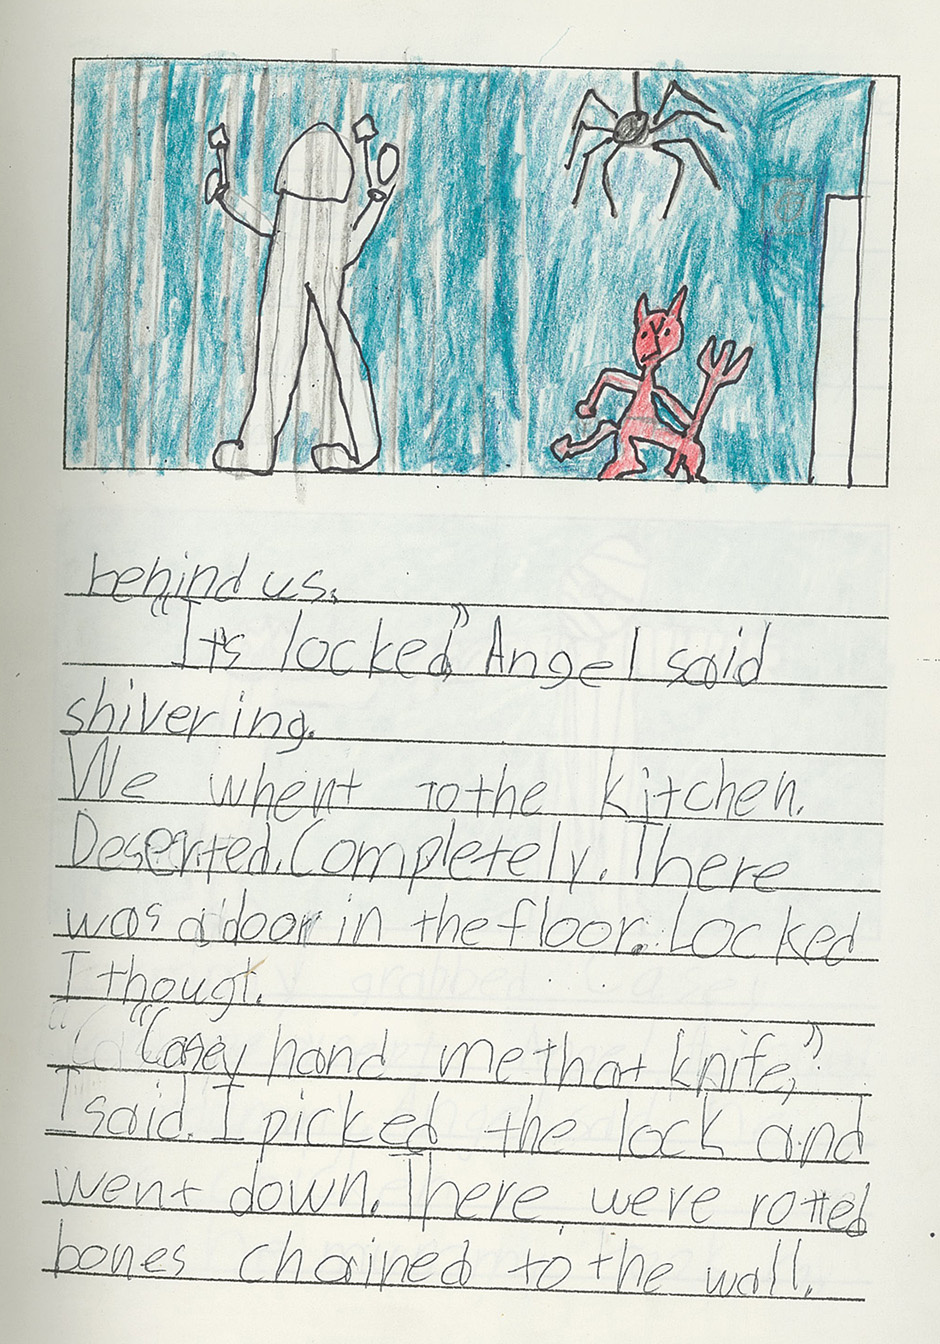 behind us.
"Its locked" Angel said
shivering.
We whent to the kitchen.
Deserted. Completely. There
was a door in the floor. Locked
I thougt.
"Casey hand me that knife,"
I said. I picked the lock and
went down. There were rotted
bones chained to the wall.